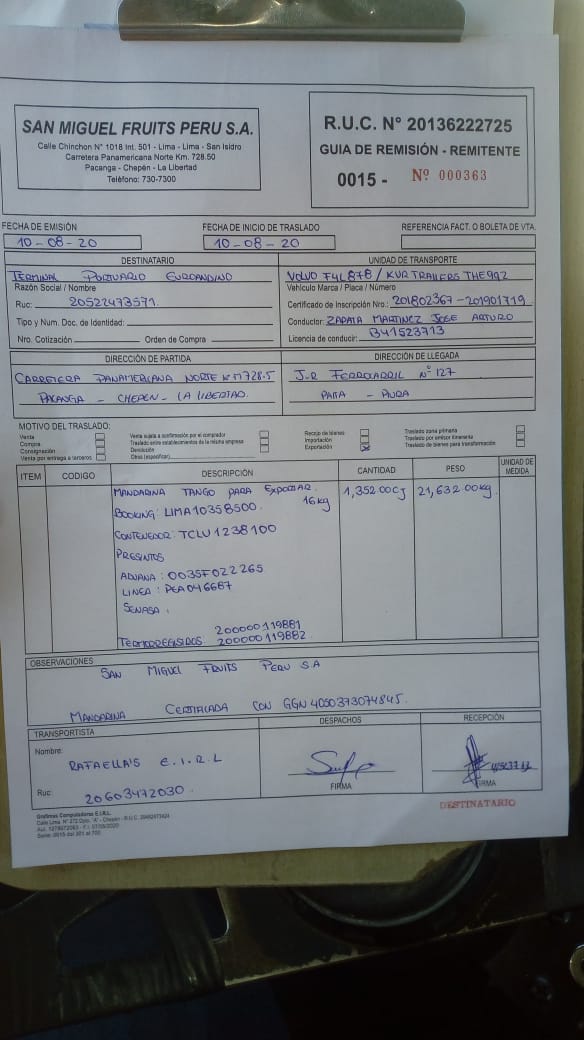 SAN MIGUEL FRUITS PERU S.A.
Calle Chinchon N° 1018 Int. 501 - Lima - Lima - San Isidro
Carretera Panamericana Norte Km. 728.50
Pacanga - Chepén - La Libertad
Teléfono: 730-7300
R.U.C. N° 20136222725
GUIA DE REMISIÓN - REMITENTE
0015 - Nº 000363
FECHA DE EMISIÓN
10-08-20
FECHA DE INICIO DE TRASLADO
10-08-20
REFERENCIA FACT. O BOLETA DE VTA.
DESTINATARIO
TERMINAL PORTUARIO EUROANDINO
Razón Social / Nombre
Ruc: 20522473571
Tipo y Num. Doc. de Identidad:
Nro. Cotización Orden de Compra
UNIDAD DE TRANSPORTE
VOLVO F4L878 / KUR TRAILERS THE992
Vehículo Marca / Placa / Número
Certificado de Inscripción Nro.: 201802367-201901719
Conductor: ZAPATA MARTINEZ JOSE ARTURO
Licencia de conducir: B41523713
DIRECCIÓN DE PARTIDA
CARRETERA PANAMERICANA NORTE 728.5
PACANGA - CHEPEN - LA LIBERTAD
DIRECCIÓN DE LLEGADA
J.R FERROCARRIL N° 127
PAITA - PIURA
MOTIVO DEL TRASLADO:
Venta
Compra
Consignación
Venta por entrega a terceros
Venta sujeta a confirmación por el comprador
Traslado entre establecimientos de la misma empresa
Devolución
Otros (especificar)
Recojo de bienes
Importación
Exportación
Traslado zona primaria
Traslado por emisor itinerante
Traslado de bienes para transformación
ITEM CODIGO DESCRIPCIÓN CANTIDAD PESO UNIDAD DE MEDIDA
MANDARINA TANGO PARA EXPORTAR. 1,352.00CJ 21,632.00kg
16kg
BOOKING: LIMA10358500.
CONTENEDOR: TCLU1238100
PRESINTOS
ADUANA: 0035F022265
LINEA: PEA046667
SENASA:
200000119881
TERMOREGISTROS: 200000119882
OBSERVACIONES
SAN MIGUEL FRUITS PERU S.A
MANDARINA CERTIFICADA CON GGN 4050373074845.
TRANSPORTISTA
Nombre: RAFAELLA'S E.I.R.L
Ruc: 20603472030
DESPACHOS
FIRMA
RECEPCIÓN
FIRMA
Grafimas Computadoras E.I.R.L.
DESTINATARIO